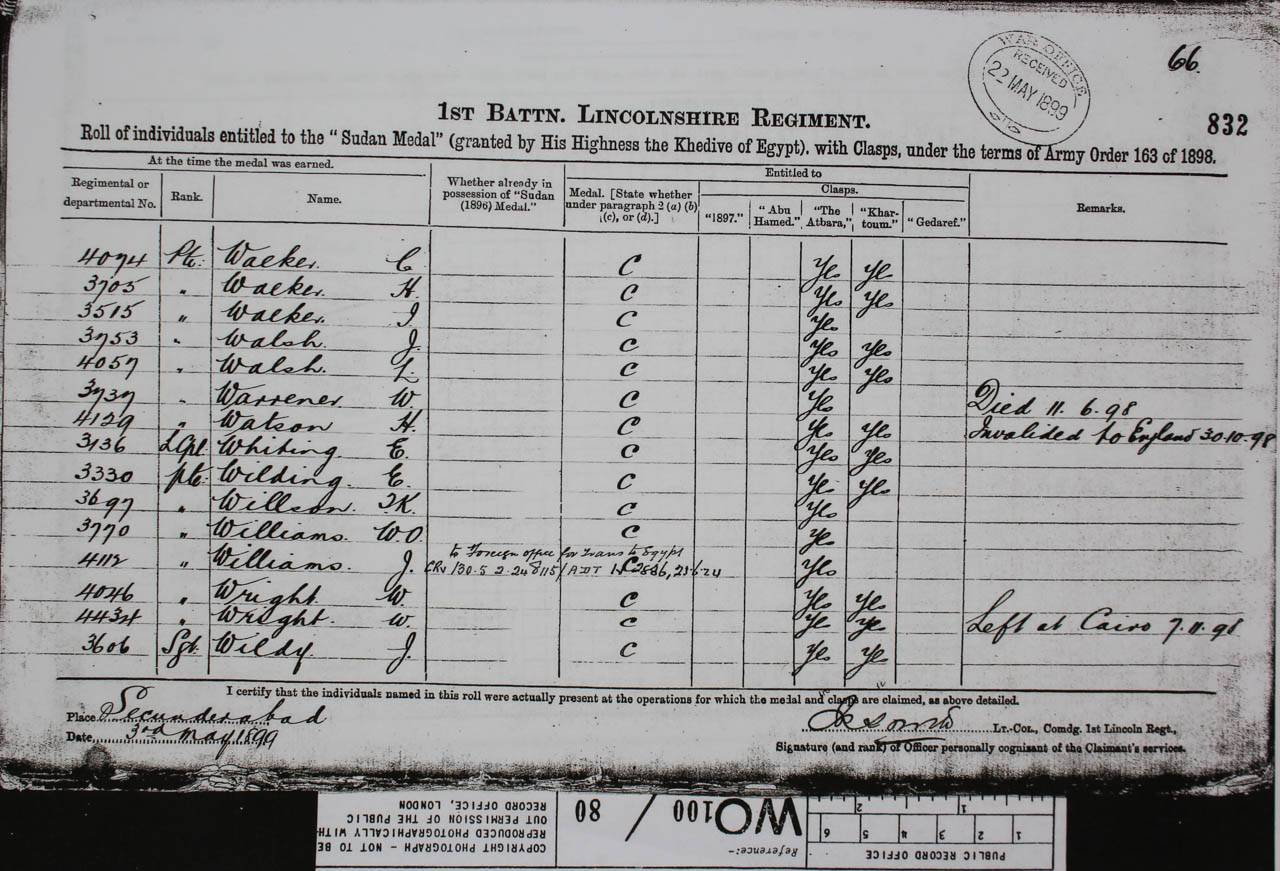 WAR OFFICE
RECEIVED
22 MAY 1899
66.
1ST BATTN. LINCOLNSHIRE REGIMENT.
832
Roll of individuals entitled to the "Sudan Medal" (granted by His Highness the Khedive of Egypt). with Clasps, under the terms of Army Order 163 of 1898.
At the time the medal was earned.
Whether already in possession of "Sudan (1896) Medal."
Entitled to
Remarks.
Regimental or departmental No.
Rank.
Name.
Medal. [State whether under paragraph 2 (a) (b) (c), or (d).]
Clasps.
"1897."
"Abu Hamed."
"The Atbara,"
"Khar-toum."
"Gedaref."
4074 Pte. Walker. C. C Yes Yes
3705 " Walker. H. C Yes Yes
3515 " Walker. J. C Yes
3753 " Walsh. J. C Yes Yes
4057 " Walsh. L. C Yes Yes
3737 " Warrener. W C Yes Died 11.6.98
4129 " Watson H. C Yes Yes Invalided to England 30.10.98
3136 L.Cpl. Whiting. E. C Yes Yes
3330 Pte. Wilding. E. C Yes Yes
3697 " Willson. T.K. C Yes
3770 " Williams. W.O. C Yes
to Foreign office for Trans to Egypt
4112 " Williams. J. C Yes
4046 " Wright W. C Yes Yes
4434 " Wright. W. C Yes Yes Left at Cairo 7.11.98
3606 Sgt. Wildy. J. C Yes Yes
I certify that the individuals named in this roll were actually present at the operations for which the medal and clasps are claimed, as above detailed.
Place Secunderabad
Date 3rd May 1899
Lt.-Col., Comdg. 1st Lincoln Regt.,
Signature (and rank) of Officer personally cognizant of the Claimant's services.
PUBLIC RECORD OFFICE
1 2 3 4 5 6
1 2
Reference:-
WO 100 / 80
COPYRIGHT PHOTOGRAPH - NOT TO BE
REPRODUCED PHOTOGRAPHICALLY WITH-
OUT PERMISSION OF THE PUBLIC
RECORD OFFICE, LONDON